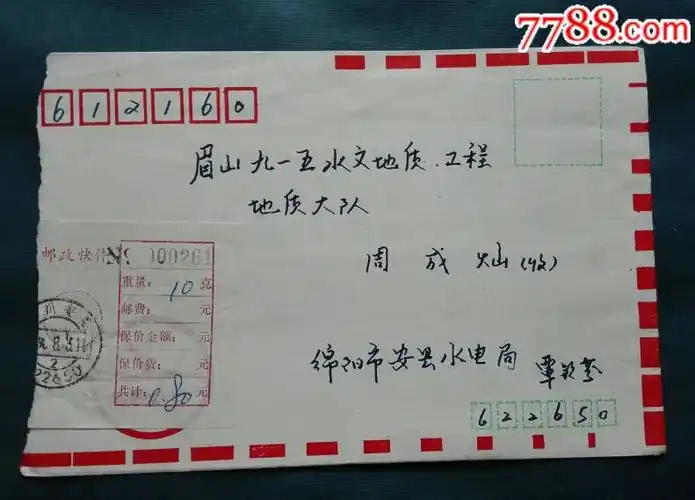 7788.com
612160
眉山九一五水文地质.工程
地质大队
周成灿(收)
邮政快件 No 000261
重量: 10 克
邮费: 元
保价金额: 元
保价费: 元
共计: 0.80 元
2
22650
绵阳市安县水电局
622650